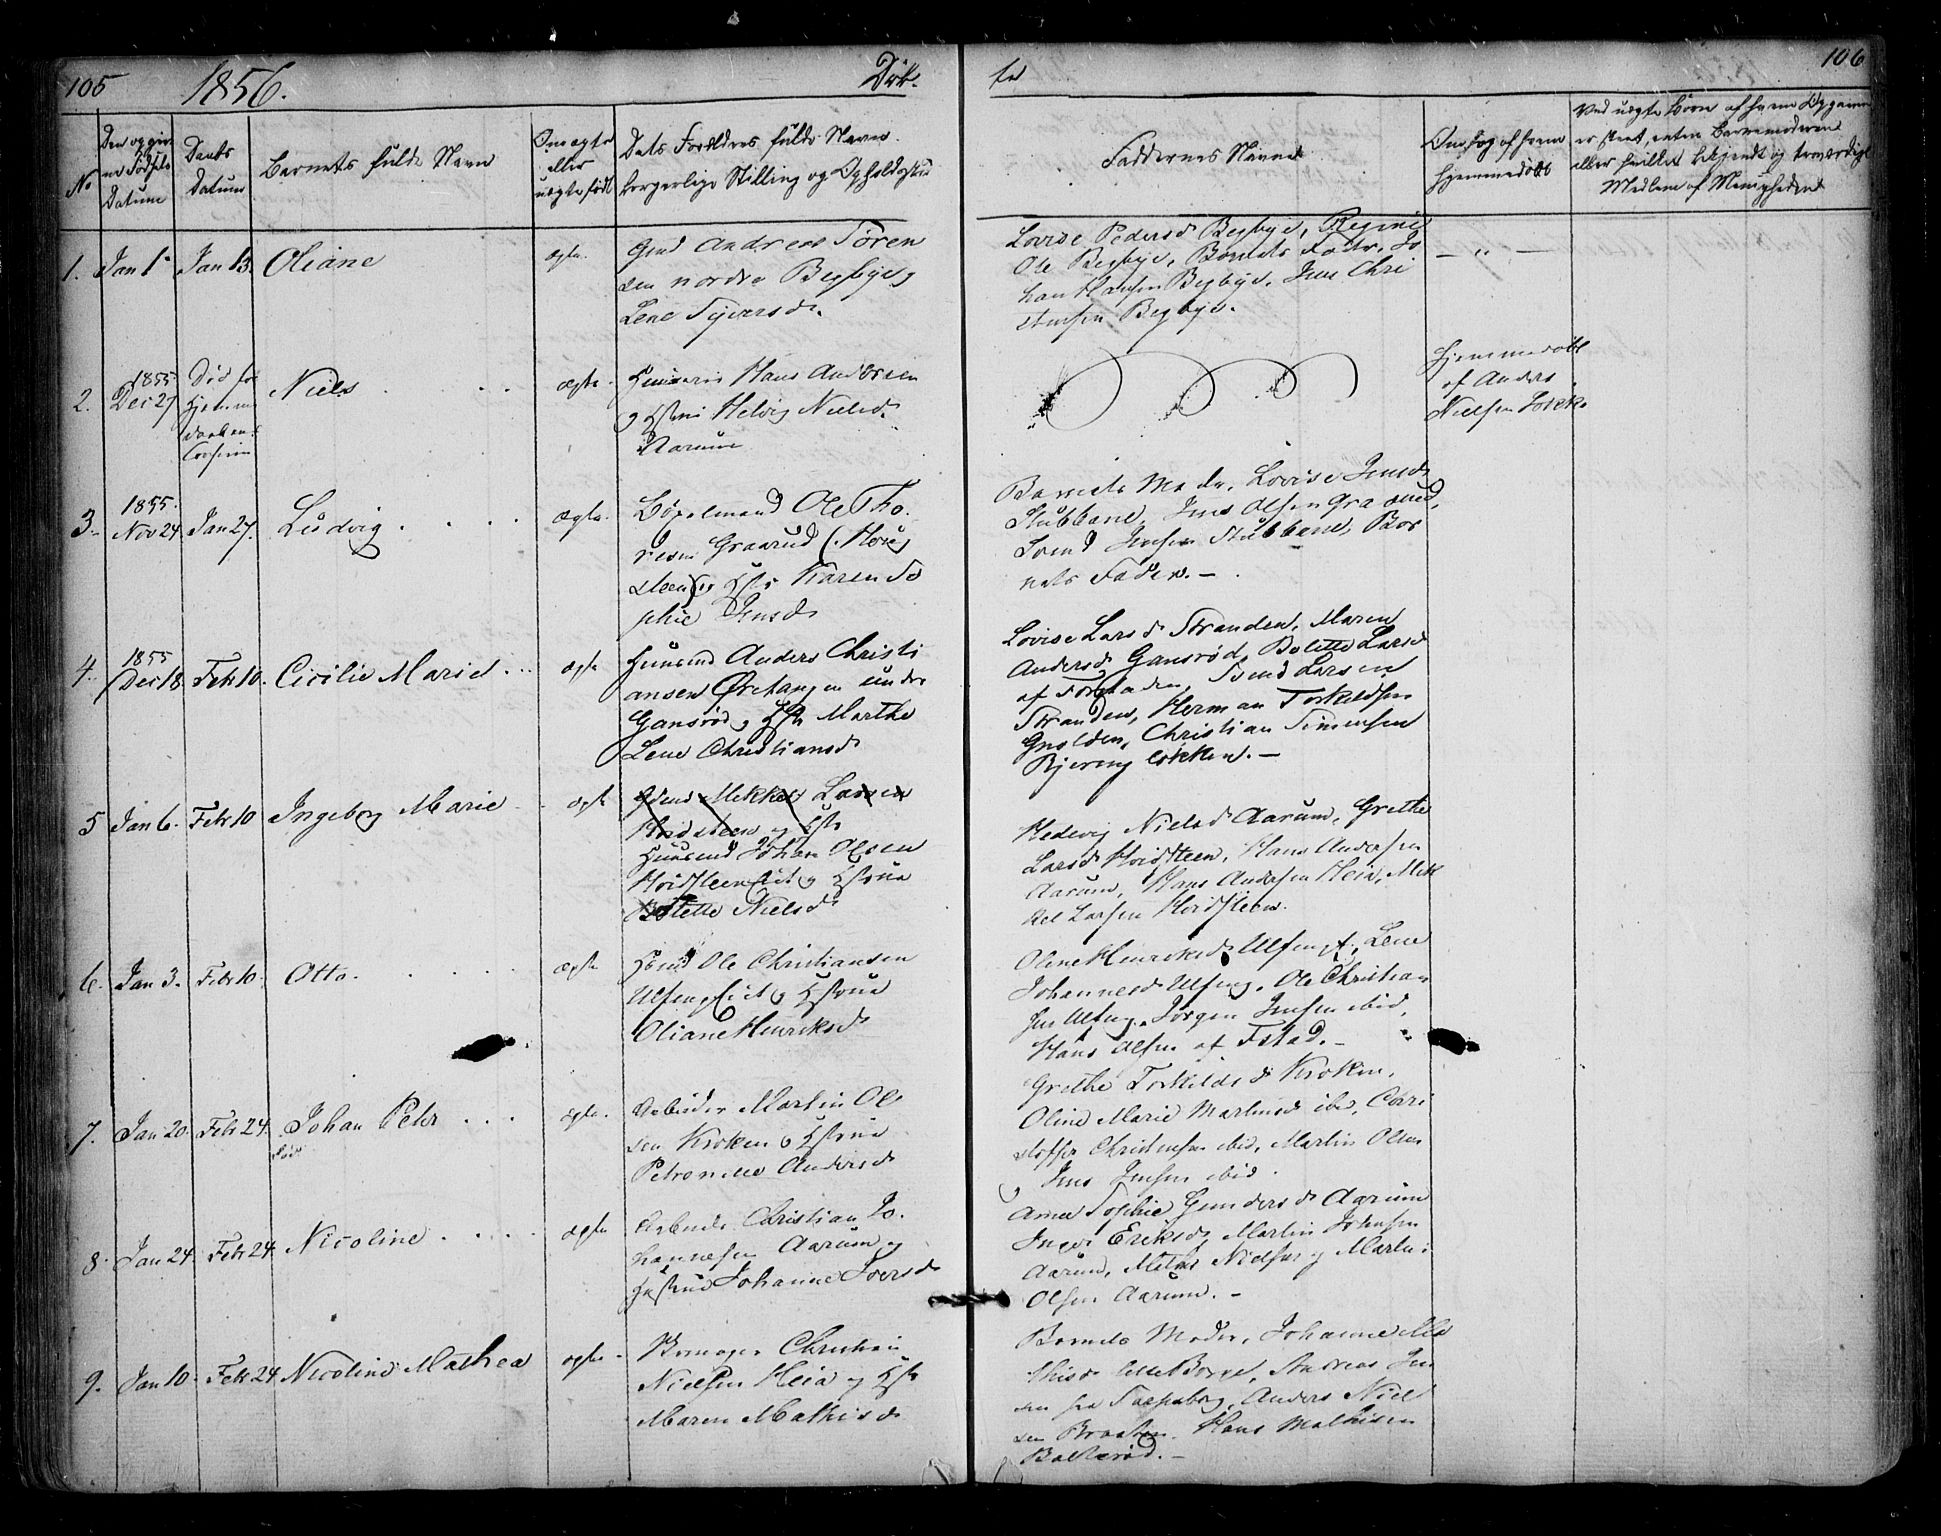 105
1856.
Døb-
te
106
No
Den opgiv-
ne Fødsels
Datum
Daabs
Datum
Barnets fulde Navn
Om ægte
eller
uægte født
Dets Forældres fulde Navn
borgerlige Stilling og Opholdssted
Faddernes Navne
Om og af hvem
hjemmedøbt
Ved uægte Børn af hvem Opgaven
er skeet, enten Barnemoderen
eller hvilket bekjendt og troværdigt
Medlem af Menigheden
1.
Jan 1
Jan 13
Oliane
ægte.
Gmd Andreas Søren
sen nordre Begbye og
Lene Syversd.
Lovise Pedersd Begbye, Regine
Ole Begbye, Barnets Fader, Jo
han Hansen Begbye, Jens Chri
stensen Begbye.
— „ —
2.
1855
Dec 27
Død før
Hjemme
daabens
Niels
ægte
Huusm Hans Andersen
og Hstru Helvig Nielsd.
Aarum
Hjemmedøbt
af Anders
Nielsen
3.
1855.
Nov 24
Jan 27.
Ludvig
ægte.
Ole Tho
resen Graarud (Høie
steen) og Hstr Karen So
phie Jensd
Barnets Moder, Lovise Jensd
Stubbene, Jens Olsen Graarud,
Svend Jensen Stubbene, Bar
nets Fader. —
4.
1855
Dec 18
Febr 10.
Cicilie Marie
ægte
Huusmd Anders Christi
ansen Øretangen under
Gansrød og Hstr Marthe
Lene Christiansd
Lovise Larsd Stranden, Maren
Andersd Gansrød, Bolette Larsd
af Svend Larsen
Stranden, Herman Torkildsen
Christian Simensen
Bjerring løkken. —
5
Jan 6.
Febr 10
Ingeborg Marie
ægte
Gdmd Mikkel Larsen
Hvidsteen og Hstr
Huusmd Johan Olsen
Hvidsteen eiet og Hstrue
Bolette Nielsd
Hedevig Nielsd Aarum, Grethe
Larsd Hvidsteen, Hans Andersen
Aarum, Hans Andersen Heia, Mik
kel Larsen Hvidsteen.
6.
Jan 3.
Febr 10.
Otto.
ægte
Ole Christiansen
Ulfeng eiet og Hstrue
Oliane Henriksd
Oline Henriksd Ulfeng, Lene
Johannesd Ulfeng, Ole Christian
sen Ulfeng, Jørgen Jensen ibid,
Hans Olsen af Fstad. —
7.
Jan 20.
Febr 24.
Johan Petr
død
ægte.
Arbeider Martin Ol
sen Kroken og Hstrue
Petronille Andersd
Grethe Torkildsd Kroken,
Oline Marie Martinsd ibd, Chri
stoffer Christensen ibid, Martin Olsen
og Jens Jensen ibid.
8.
Jan 24.
Febr 24.
Nicoline
ægte
Arbeider Christian Jo
hannesen Aarum og
Hustrue Johanne Iversd
Anne Sophie Gundersd Aarum
Inger Eriksd, Martin Johnsen
Aarum, Nielsen og Martin
Olsen Aarum. —
9.
Jan 10.
Febr 24
Nicoline Mathea
ægte
Skomager Christian
Nielsen Heia og Hstr
Maren Mathisd
Barnets Moder, Johanne Ma
thisd lille Borge, Andreas Jen
sen fra Sarpsborg, Anders Niel
sen Braaten, Hans Mathisen
Balkerød. —